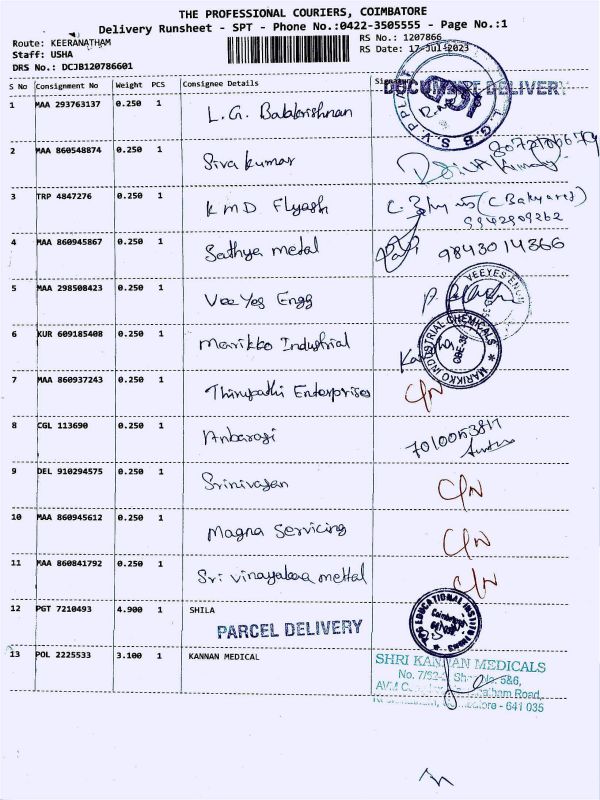 THE PROFESSIONAL COURIERS, COIMBATORE
Delivery Runsheet - SPT - Phone No.:0422-3505555 - Page No.:1
Route: KEERANATHAM RS No.: 1207866
Staff: USHA RS Date: 17-Jul-2023
DRS No.: DCJB120786601
S No Consignment No Weight PCS Consignee Details Signature
DOCUMENT DELIVERY
1 MAA 293763137 0.250 1 L.G. Balakrishnan
L. G. B. S. V. P
2 MAA 860548874 0.250 1 Siva kumar
3 TRP 4847276 0.250 1 KMD Flyash
9942909262
4 MAA 860945867 0.250 1 Sathya metal 9843014366
5 MAA 298508423 0.250 1 Vee Yes Engg
VEEYES ENGG
6 KUR 609185408 0.250 1 Marikko Industrial
MARIKKO INDUSTRIAL CHEMICALS
7 MAA 860937243 0.250 1 Thirupathi Enterprises C/N
8 CGL 113690 0.250 1 Anbarasi
9 DEL 910294575 0.250 1 Srinivasan C/N
10 MAA 860945612 0.250 1 Magna Servicing C/N
11 MAA 860841792 0.250 1 Sri vinayakaa mettal C/N
12 PGT 7210493 4.900 1 SHILA
EDUCATIONAL INSTITUTIONS
Coimbatore
PARCEL DELIVERY
13 POL 2225533 3.100 1 KANNAN MEDICAL
SHRI KANNAN MEDICALS
No. 5&6,
Road,
- 641 035